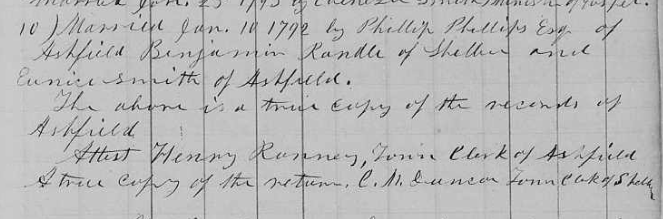 Married Jan. 25 1793 by Ebenezer Smith Minister of Gospel.
10) Married Jan. 10 1792 by Phillip Phillips Esq of
Ashfield Benjamin Randle of Shelbu and
Eunice Smith of Ashfield.
The above is a true copy of the records of
Ashfield
Attest Henry Ranney, Town Clerk of Ashfield
A true copy of the return. C. M. Duncan Town Clk of Shelbu